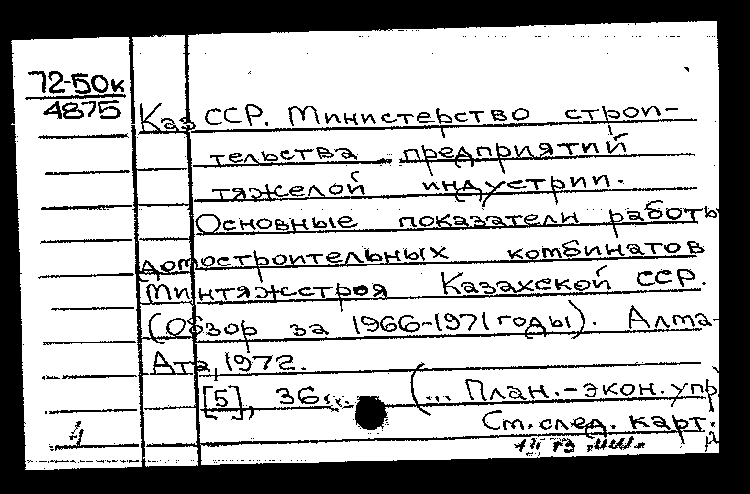 72-50к
4875
Каз ССР. Министерство строи-
тельства предприятий
тяжелой индустрии.
Основные показатели работы
домостроительных комбинатов
Минтяжстроя Казахской ССР.
(Обзор за 1966-1971 годы). Алма-
Ата, 1972.
[5], 36 с. (... План.-экон. упр.
См. след. карт.
4